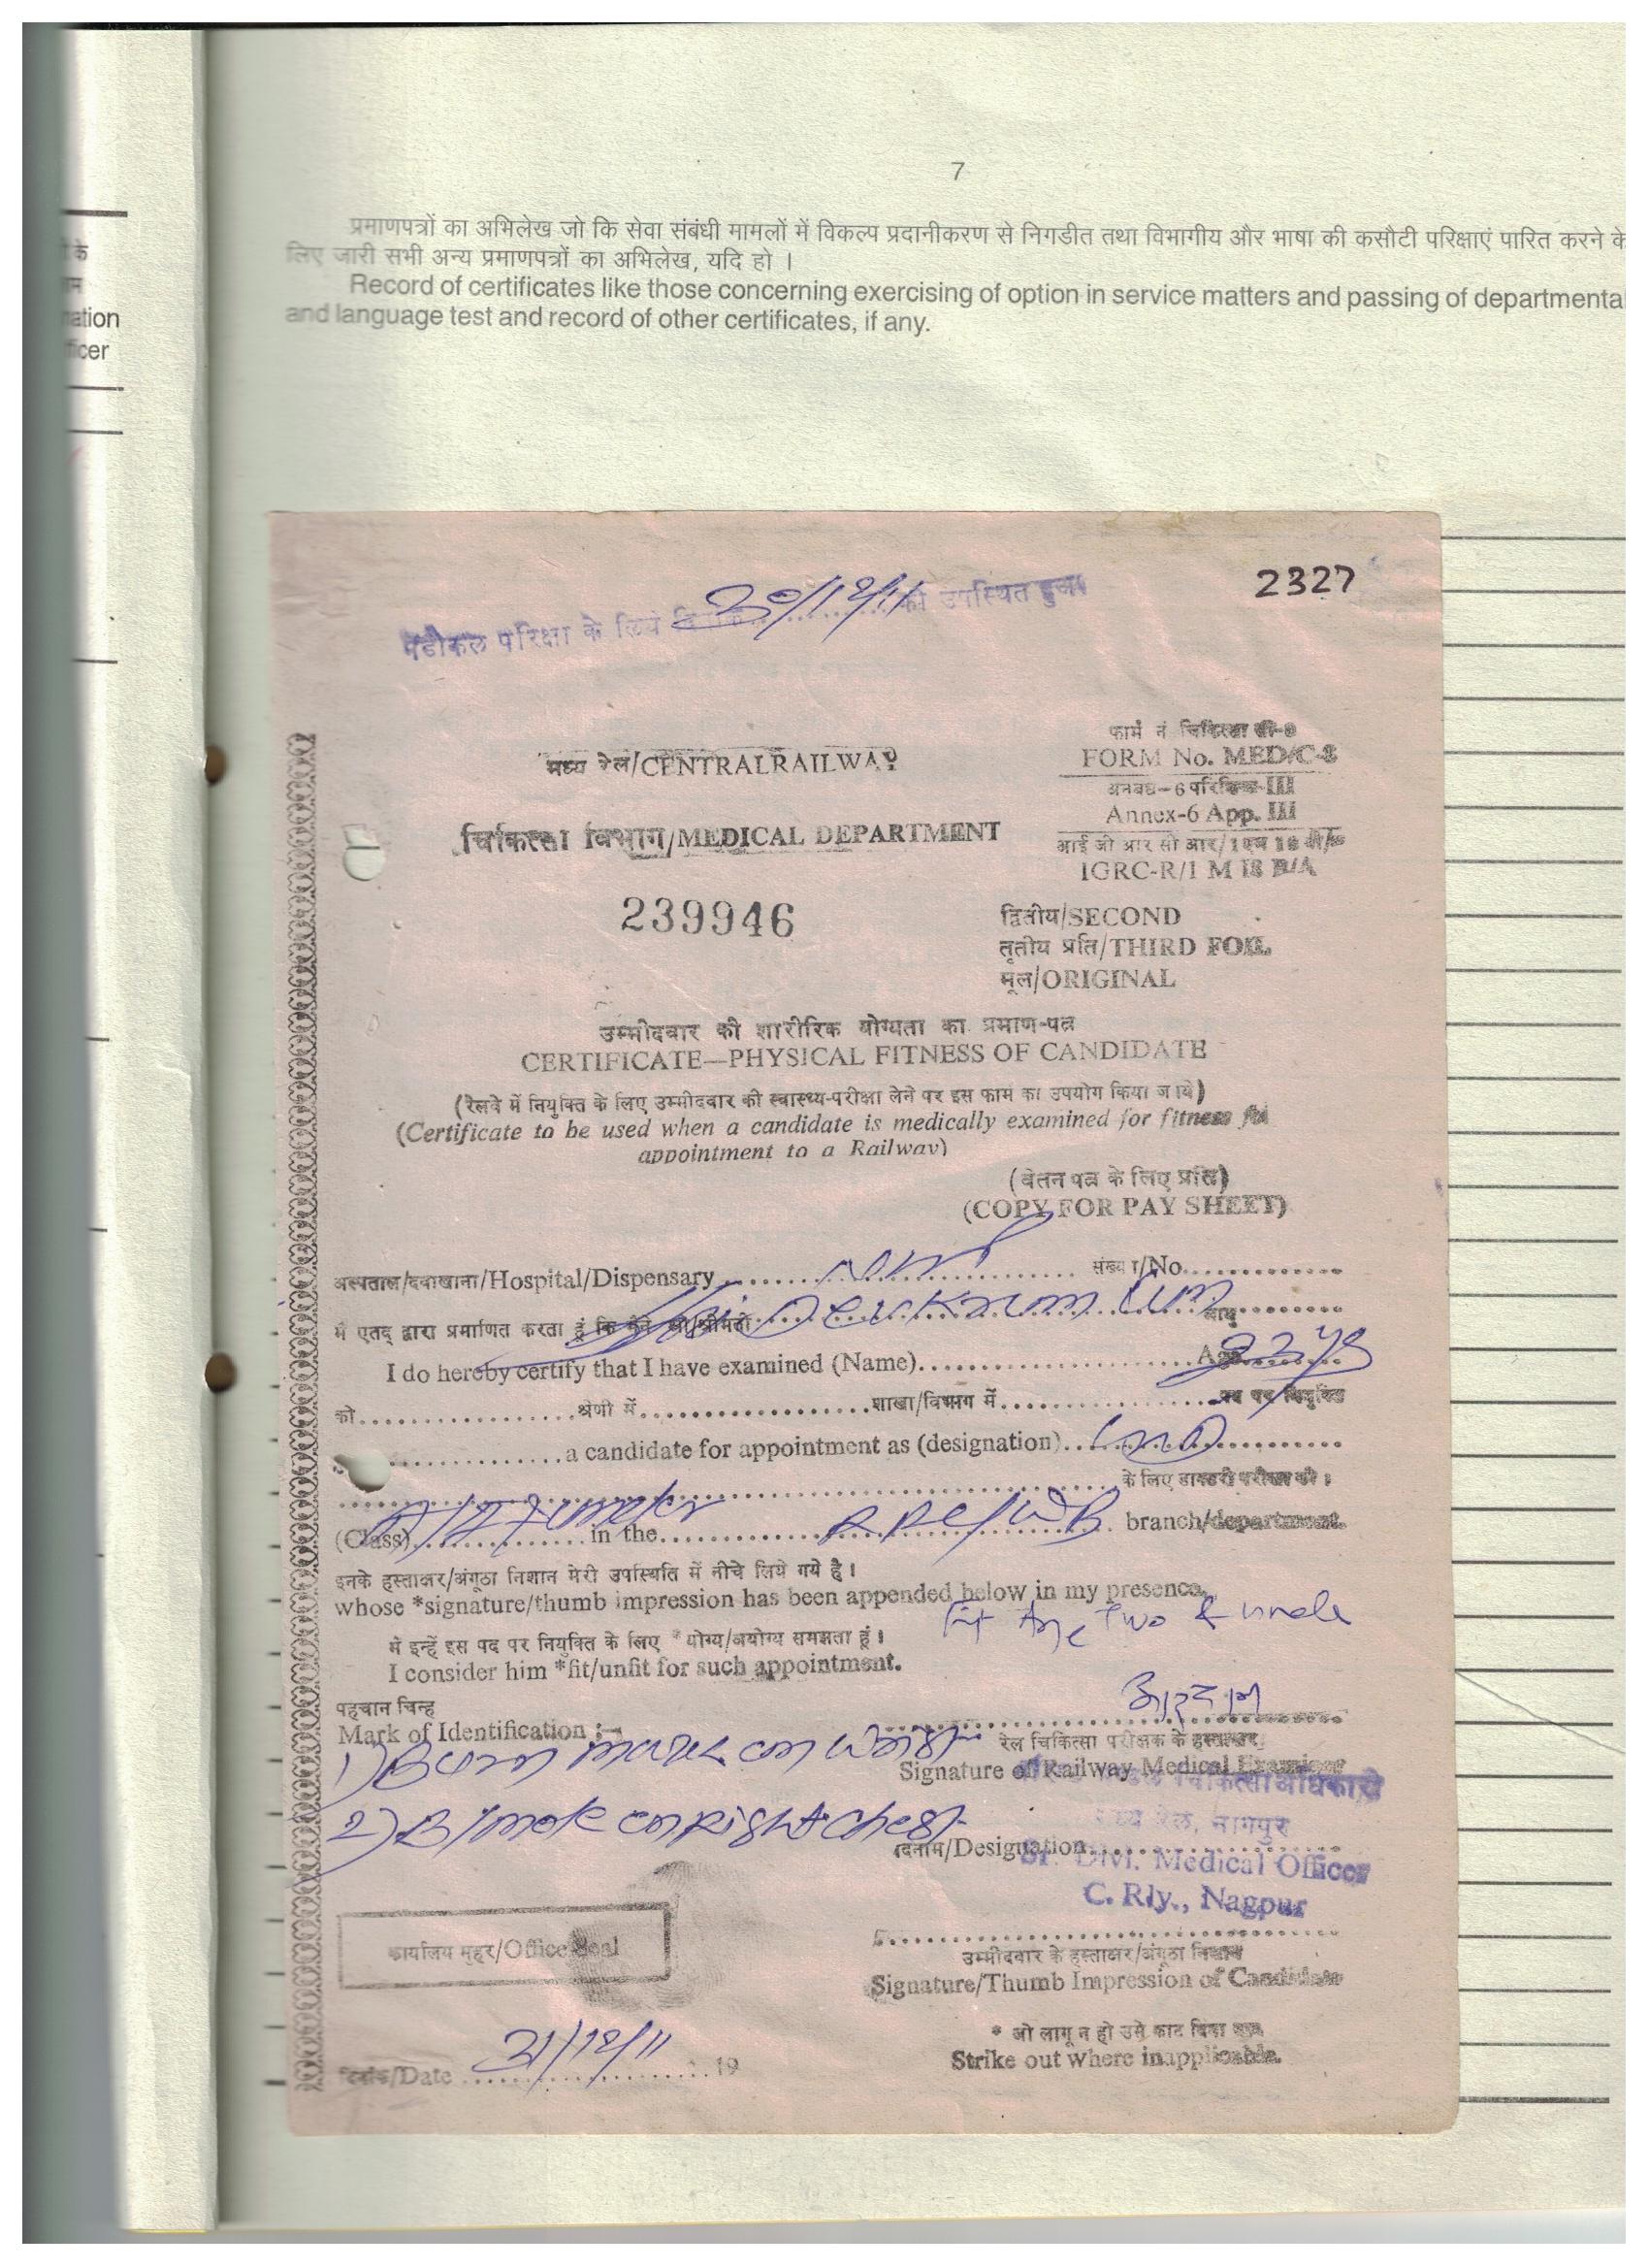 7
प्रमाणपत्रों का अभिलेख जो कि सेवा संबंधी मामलों में विकल्प प्रदानीकरण से निगडीत तथा विभागीय और भाषा की कसौटी परिक्षाएं पारित करने के
लिए जारी सभी अन्य प्रमाणपत्रों का अभिलेख, यदि हो ।
Record of certificates like those concerning exercising of option in service matters and passing of departmental
and language test and record of other certificates, if any.
ation
ficer
2327
परिक्षा के लिये 30/12/11 को उपस्थित हुआ
मध्य रेल/CENTRAL RAILWAY
फार्म नं चिकित्सा सी-8
FORM No. MED/C-8
Annex-6 App. III
IGRC-R/1 M 18 B/A
चिकित्सा विभाग/MEDICAL DEPARTMENT
239946
द्वितीय/SECOND
तृतीय प्रति/THIRD FOIL
मूल/ORIGINAL
उम्मीदवार की शारीरिक योग्यता का प्रमाण-पत्र
CERTIFICATE—PHYSICAL FITNESS OF CANDIDATE
(रेलवे में नियुक्ति के लिए उम्मीदवार की स्वास्थ्य-परीक्षा लेने पर इस फार्म का उपयोग किया जाये)
(Certificate to be used when a candidate is medically examined for fitness for
appointment to a Railway)
(वेतन पत्र के लिए प्रति)
(COPY FOR PAY SHEET)
अस्पताल/दवाखाना/Hospital/Dispensary संख्या/No
मै एतद् द्वारा प्रमाणित करता हूं कि मैंने श्री/श्रीमती आयु
I do hereby certify that I have examined (Name) Age
को श्रेणी में शाखा/विभाग में पद पर नियुक्ति
a candidate for appointment as (designation)
के लिए डाक्टरी परीक्षा की ।
(Class) in the branch/department.
इनके हस्ताक्षर/अंगूठा निशान मेरी उपस्थिति में नीचे लिये गये है ।
whose *signature/thumb impression has been appended below in my presence.
मे इन्हें इस पद पर नियुक्ति के लिए *योग्य/अयोग्य समझता हूं ।
I consider him *fit/unfit for such appointment.
पहचान चिन्ह
Mark of Identification :—
1) Burn mark on wrist
रेल चिकित्सा परीक्षक के हस्ताक्षर
Signature of Railway Medical Examiner
चिकित्सा अधिकारी
मध्य रेल, नागपुर
2) B/mole on Right chest
पदनाम/Designation
Sr. Divl. Medical Officer
C. Rly., Nagpur
कार्यालय मुहर/Office Seal
उम्मीदवार के हस्ताक्षर/अंगूठा निशान
Signature/Thumb Impression of Candidate
दिनांक/Date 31/12/11 19
* जो लागू न हो उसे काट दिया जाय
Strike out where inapplicable.